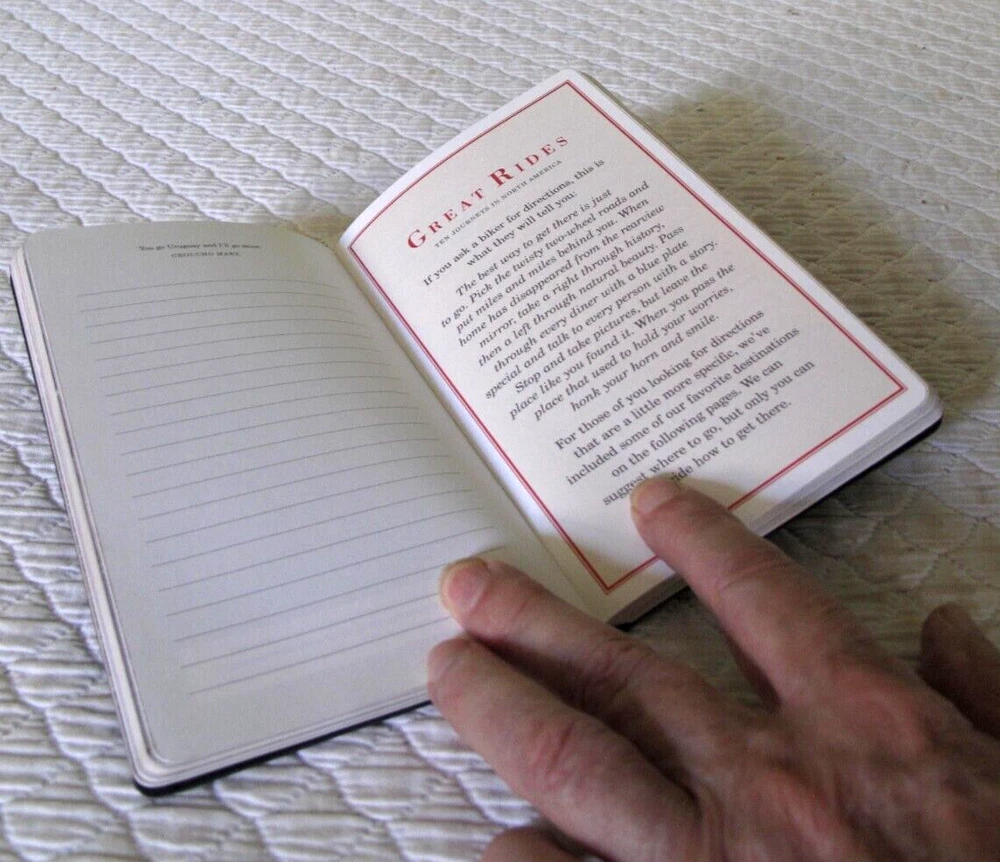 You go Uruguay and I'll go mine.
GROUCHO MARX
GREAT RIDES
TEN JOURNEYS IN NORTH AMERICA
If you ask a biker for directions, this is
what they will tell you:
The best way to get there is just
to go. Pick the twisty two-wheel roads and
put miles and miles behind you. When
home has disappeared from the rearview
mirror, take a right through history,
then a left through natural beauty. Pass
through every diner with a blue plate
special and talk to every person with a story.
Stop and take pictures, but leave the
place like you found it. When you pass the
place that used to hold your worries,
honk your horn and smile.
For those of you looking for directions
that are a little more specific, we've
included some of our favorite destinations
on the following pages. We can
suggest where to go, but only you can
how to get there.